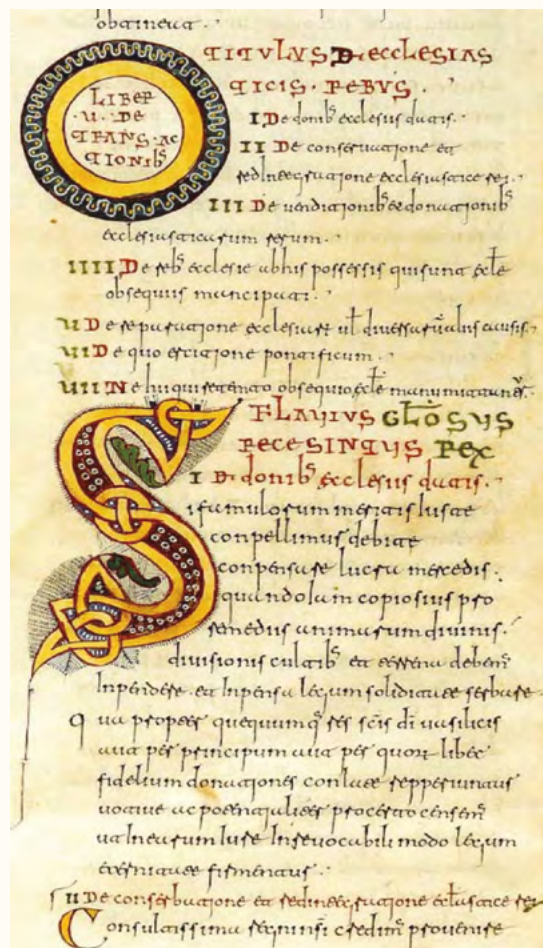 obtineat.
TITULUS DE ECCLESIAS
TICIS · REBUS ·
LIBER
· U · DE
TRANS · AC
TIONIBs
I De donibs ecclesiis datis ·
II De conseruatione et
redintegratione ecclesiastice rei ·
III De uenditionibs et donationibs
ecclesiasticarum rerum ·
IIII De rebs ecclesie ab his possessis qui sunt ecle
obsequiis mancipati ·
UI De pontificum ·
UII Ne retento obsequio ecle
FLAUIUS GLOSUS
RECESINTUS REX
I De donibs ecclesiis datis ·
Si famulorum meritis iuste
conpellimur debite
conpensare lucra mercedis ·
quando iam copiosius pro
remediis animarum diuinis ·
cultibs et terrena debem
inpendere et inpensa legum soliditate serbare
Qua propter quequumq res scis di uasilicis
aut per principum aut per quorum libet
fidelium donationes conlate repperiuntur
uotiue ac pro certo censem
ut in earum iure inreuocabili modo legum
eternitate firmentur ·
II De conserbatione et redintegratione eclesiastice rei
Consultissima regni nsi credim prouenire